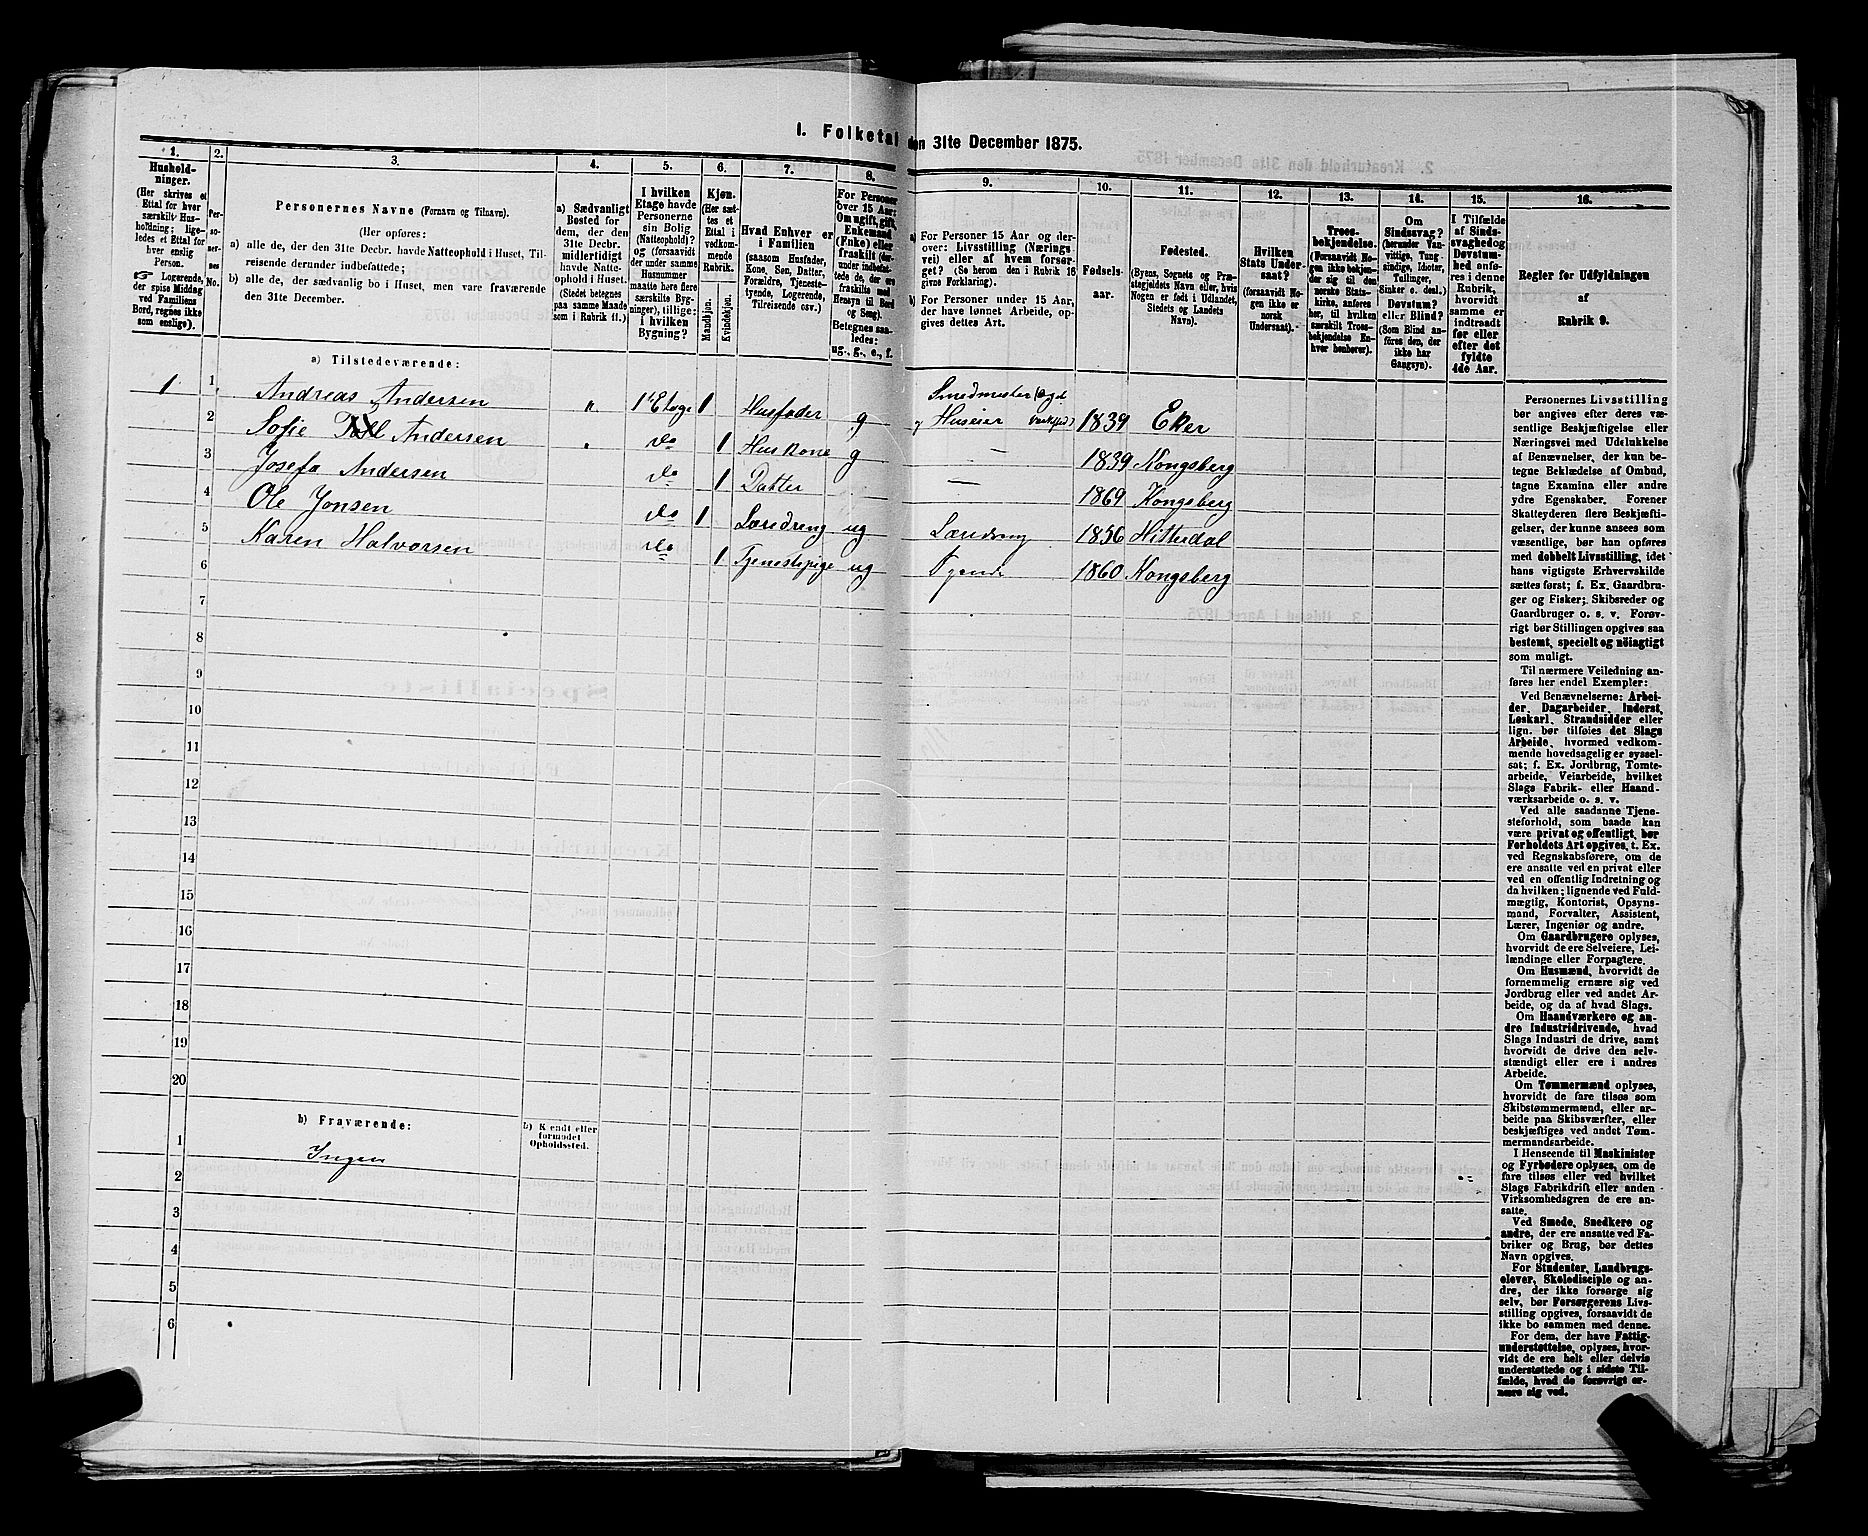 I. Folketal den 31te December 1875.
1.
2.
3.
4.
5.
6.
7.
8.
9.
10.
11.
12.
13.
14.
15.
16.
Husholdninger.
(Her skrives et Ettal for hver særskilt Husholdning; ligeledes et Ettal for hver enslig Person.
☞ Logerende, der spise Middag ved Familiens Bord, regnes ikke som enslige.)
Personernes No.
Personernes Navne (Fornavn og Tilnavn).
(Her opføres:
a) alle de, der den 31te Decbr. havde Natteophold i Huset, Tilreisende derunder indbefattede;
b) alle de, der sædvanlig bo i Huset, men vare fraværende den 31te December.
a) Sædvanligt Bosted for dem, der den 31te Decbr. midlertidigt havde Natteophold i Huset.
(Stedet betegnes paa samme Maade som i Rubrik 11.)
I hvilken Etage havde Personerne sin Bolig (Natteophold)? og (forsaavidt der under samme Husnummer maatte høre flere særskilte Bygninger), tillige: i hvilken Bygning?
Kjøn.
(Her sættes et Ettal i vedkommende Rubrik.
Mandkjøn.
Kvindekjøn.
Hvad Enhver er i Familien
(saasom Husfader, Kone, Søn, Datter, Forældre, Tjenestetyende, Logerende, Tilreisende osv.)
For Personer over 15 Aar: Om ugift, gift, Enkemand (Enke) eller fraskilt (derunder indbefattede de, der ere fraskilte med Hensyn til Bord og Seng).
Betegnes saaledes: ug., g., e., f.
a) For Personer 15 Aar og derover: Livsstilling (Næringsvei) eller af hvem forsørget? (Se herom den i Rubrik 16 givne Forklaring).
b) For Personer under 15 Aar, der have lønnet Arbeide, opgives dettes Art.
Fødselsaar.
Fødested.
(Byens, Sognets og Præstegjeldets Navn eller, hvis Nogen er født i Udlandet, Stedets og Landets Navn).
Hvilken Stats Undersaat?
(forsaavidt Nogen ikke er norsk Undersaat).
Troesbekjendelse.
(Forsaavidt Nogen ikke bekjender sig til den norske Statskirke, anføres her, til hvilken særskilt Troesbekjendelse Enhver henhører).
Om Sindssvag? (herunder Vanvittige, Tungsindige, Idioter, Sinker o. desl.) Døvstum? eller Blind? (Som Blind anføres den, der ikke har Gangsyn).
I Tilfælde af Sindssvaghed og Døvstumhed anføres i denne Rubrik, hvorvidt samme er indtraadt før eller efter det fyldte 4de Aar.
Regler for Udfyldningen af Rubrik 9.
a) Tilstedeværende:
1 1 Andreas Andersen " 1ste Etage 1 Husfader g Smedmester og Huseier 1839 Eker
2 Sofie Andersen " do 1 Huskone g — 1839 Kongsberg
3 Josefa Andersen do 1 Datter — 1869 Kongsberg
4 Ole Jonsen do 1 Læredreng ug Læredreng 1856 Hitterdal
5 Karen Halvorsen do 1 Tjenestepige ug 1860 Kongsberg
6
7
8
9
10
11
12
13
14
15
16
17
18
19
20
b) Fraværende:
b) Kjendt eller formodet Opholdssted.
1 Ingen
2
3
4
5
6
Personernes Livsstilling
bør angives efter deres væ-
sentlige Beskjæftigelse eller
Næringsvei med Udelukkelse
af Benævnelser, der kun be-
tegne Beklædelse af Ombud,
tagne Examina eller andre
ydre Egenskaber. Forener
Skatteyderen flere Beskjæfti-
gelser, der kunne ansees som
væsentlige, bør han opføres
med dobbelt Livsstilling, idet
hans vigtigste Erhvervskilde
sættes først; f. Ex. Gaardbru-
ger og Fisker; Skibsreder og
Gaardbruger o. s. v. Forøv-
rigt bør Stillingen opgives saa
bestemt, specielt og nøiagtigt
som muligt.
Til nærmere Veiledning an-
føres her endel Exempler:
Ved Benævnelserne: Arbei-
der, Dagarbeider, Inderst,
Løskarl, Strandsidder eller
lign. bør tilføies det Slags
Arbeide, hvormed vedkom-
mende hovedsagelig er syssel-
sat; f. Ex. Jordbrug, Tomte-
arbeide, Veiarbeide, hvilket
Slags Fabrik- eller Haand-
værksarbeide o. s. v.
Ved alle saadanne Tjene-
steforhold, som baade kan
være privat og offentligt, bør
Forholdets Art opgives, t. Ex.
ved Regnskabsførere, om de
ere ansatte ved en privat eller
ved en offentlig Indretning og
da hvilken; lignende ved Fuld-
mægtig, Kontorist, Opsyns-
mand, Forvalter, Assistent,
Lærer, Ingeniør og andre.
Om Gaardbrugere oplyses,
hvorvidt de ere Selveiere, Lei-
lændinge eller Forpagtere.
Om Husmænd, hvorvidt de
fornemmelig ernære sig ved
Jordbrug eller ved andet Ar-
beide, og da af hvad Slags.
Om Haandværkere og an-
dre Industridrivende, hvad
Slags Industri de drive, samt
hvorvidt de drive den selv-
stændigt eller ere i andres
Arbeide.
Om Tømmermænd oplyses,
hvorvidt de fare tilsøs som
Skibstømmermænd, eller ar-
beide paa Skibsværfter, eller
beskjæftiges ved andet Tøm-
mermandsarbeide.
I Henseende til Maskinister
og Fyrbødere oplyses, om de
fare tilsøs eller ved hvilket
Slags Fabrikdrift eller anden
Virksomhedsgren de ere an-
satte.
Ved Smede, Snedkere og
andre, der ere ansatte ved Fa-
briker og Brug, bør dettes
Navn opgives.
For Studenter, Landbrugs-
elever, Skoledisciple og an-
dre, der ikke forsørge sig
selv, bør Forsørgerens Livs-
stilling opgives, forsaavidt de
ikke bo sammen med denne.
For dem, der have Fattig-
understøttelse, oplyses, hvor-
vidt de ere helt eller delvis
understøttede og i sidste Til-
fælde, hvad de forøvrigt er-
nære sig ved.